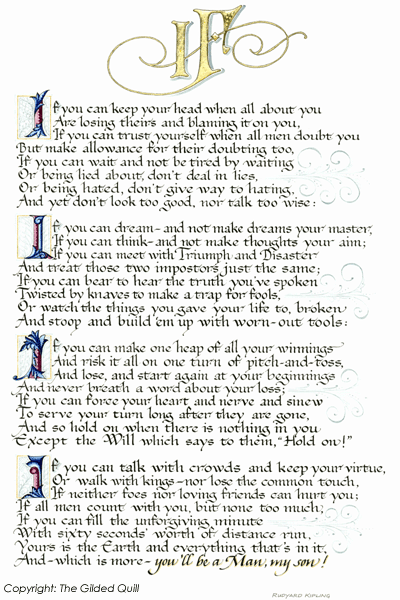 IF
If you can keep your head when all about you
Are losing theirs and blaming it on you,
If you can trust yourself when all men doubt you
But make allowance for their doubting too,
If you can wait and not be tired by waiting
Or being lied about, don't deal in lies,
Or being hated, don't give way to hating,
And yet don't look too good, nor talk too wise:
If you can dream - and not make dreams your master,
If you can think - and not make thoughts your aim;
If you can meet with Triumph and Disaster
And treat those two impostors just the same;
If you can bear to hear the truth you've spoken
Twisted by knaves to make a trap for fools,
Or watch the things you gave your life to, broken
And stoop and build 'em up with worn-out tools:
If you can make one heap of all your winnings
And risk it all on one turn of pitch-and-toss,
And lose, and start again at your beginnings
And never breath a word about your loss;
If you can force your heart and nerve and sinew
To serve your turn long after they are gone,
And so hold on when there is nothing in you
Except the Will which says to them, "Hold on!"
If you can talk with crowds and keep your virtue,
Or walk with kings - nor lose the common touch,
If neither foes nor loving friends can hurt you;
If all men count with you, but none too much;
If you can fill the unforgiving minute
With sixty seconds' worth of distance run,
Yours is the Earth and everything that's in it,
And - which is more - you'll be a Man, my son!
Copyright: The Gilded Quill
RUDYARD KIPLING